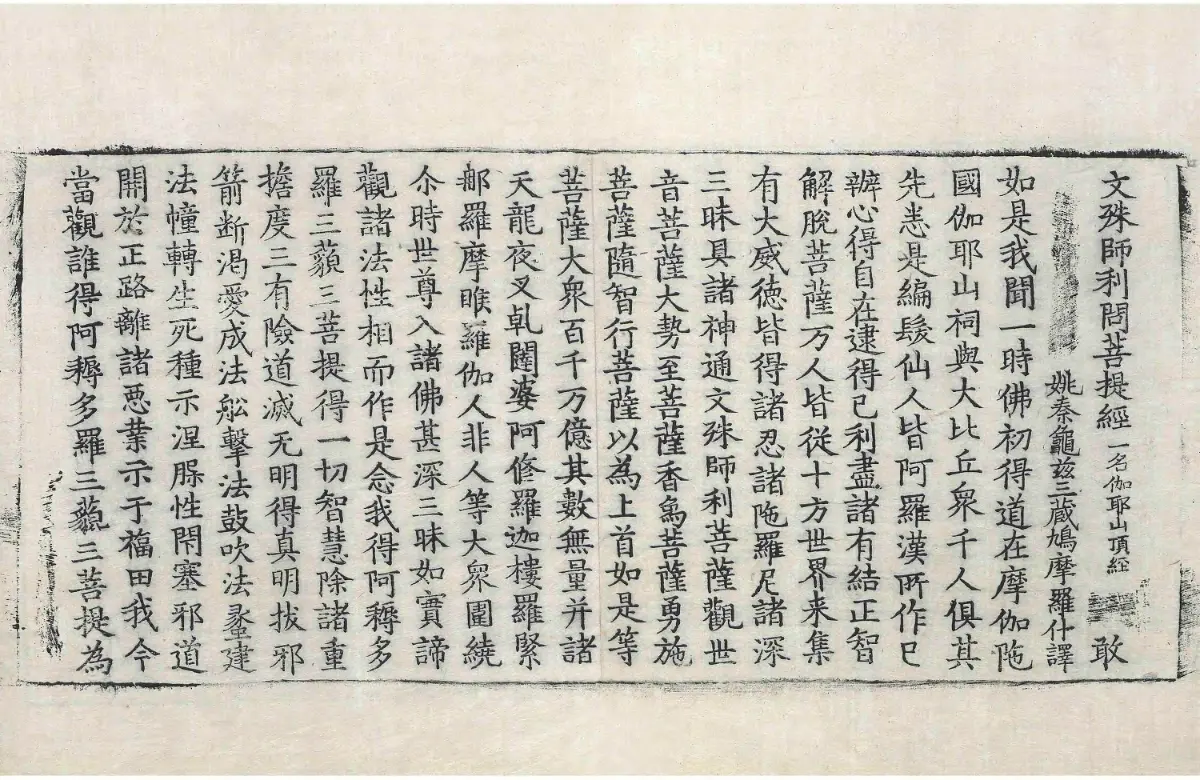 文殊師利問菩提經一名伽耶山頂経 敢
姚秦龜兹三蔵鳩摩羅什譯
如是我聞一時佛初得道在摩伽陁
國伽耶山祠與大比丘衆千人俱其
先悉是編髮仙人皆阿羅漢所作已
辦心得自在逮得己利盡諸有結正智
解脫菩薩万人皆從十方世界来集
有大威徳皆得諸忍諸陁羅尼諸深
三昧具諸神通文殊師利菩薩觀世
音菩薩大勢至菩薩香象菩薩勇施
菩薩隨智行菩薩以為上首如是等
菩薩大衆百千万億其數無量并諸
天龍夜叉乹闥婆阿修羅迦樓羅緊
那羅摩睺羅伽人非人等大衆圍繞
尒時世尊入諸佛甚深三昧如實諦
觀諸法性相而作是念我得阿耨多
羅三藐三菩提得一切智慧除諸重
擔度三有險道滅无明得真明拔邪
箭断渇愛成法舩擊法鼓吹法蠡建
法幢轉生死種示涅槃性閇塞邪道
開於正路離諸悪業示于福田我今
當觀誰得阿耨多羅三藐三菩提為